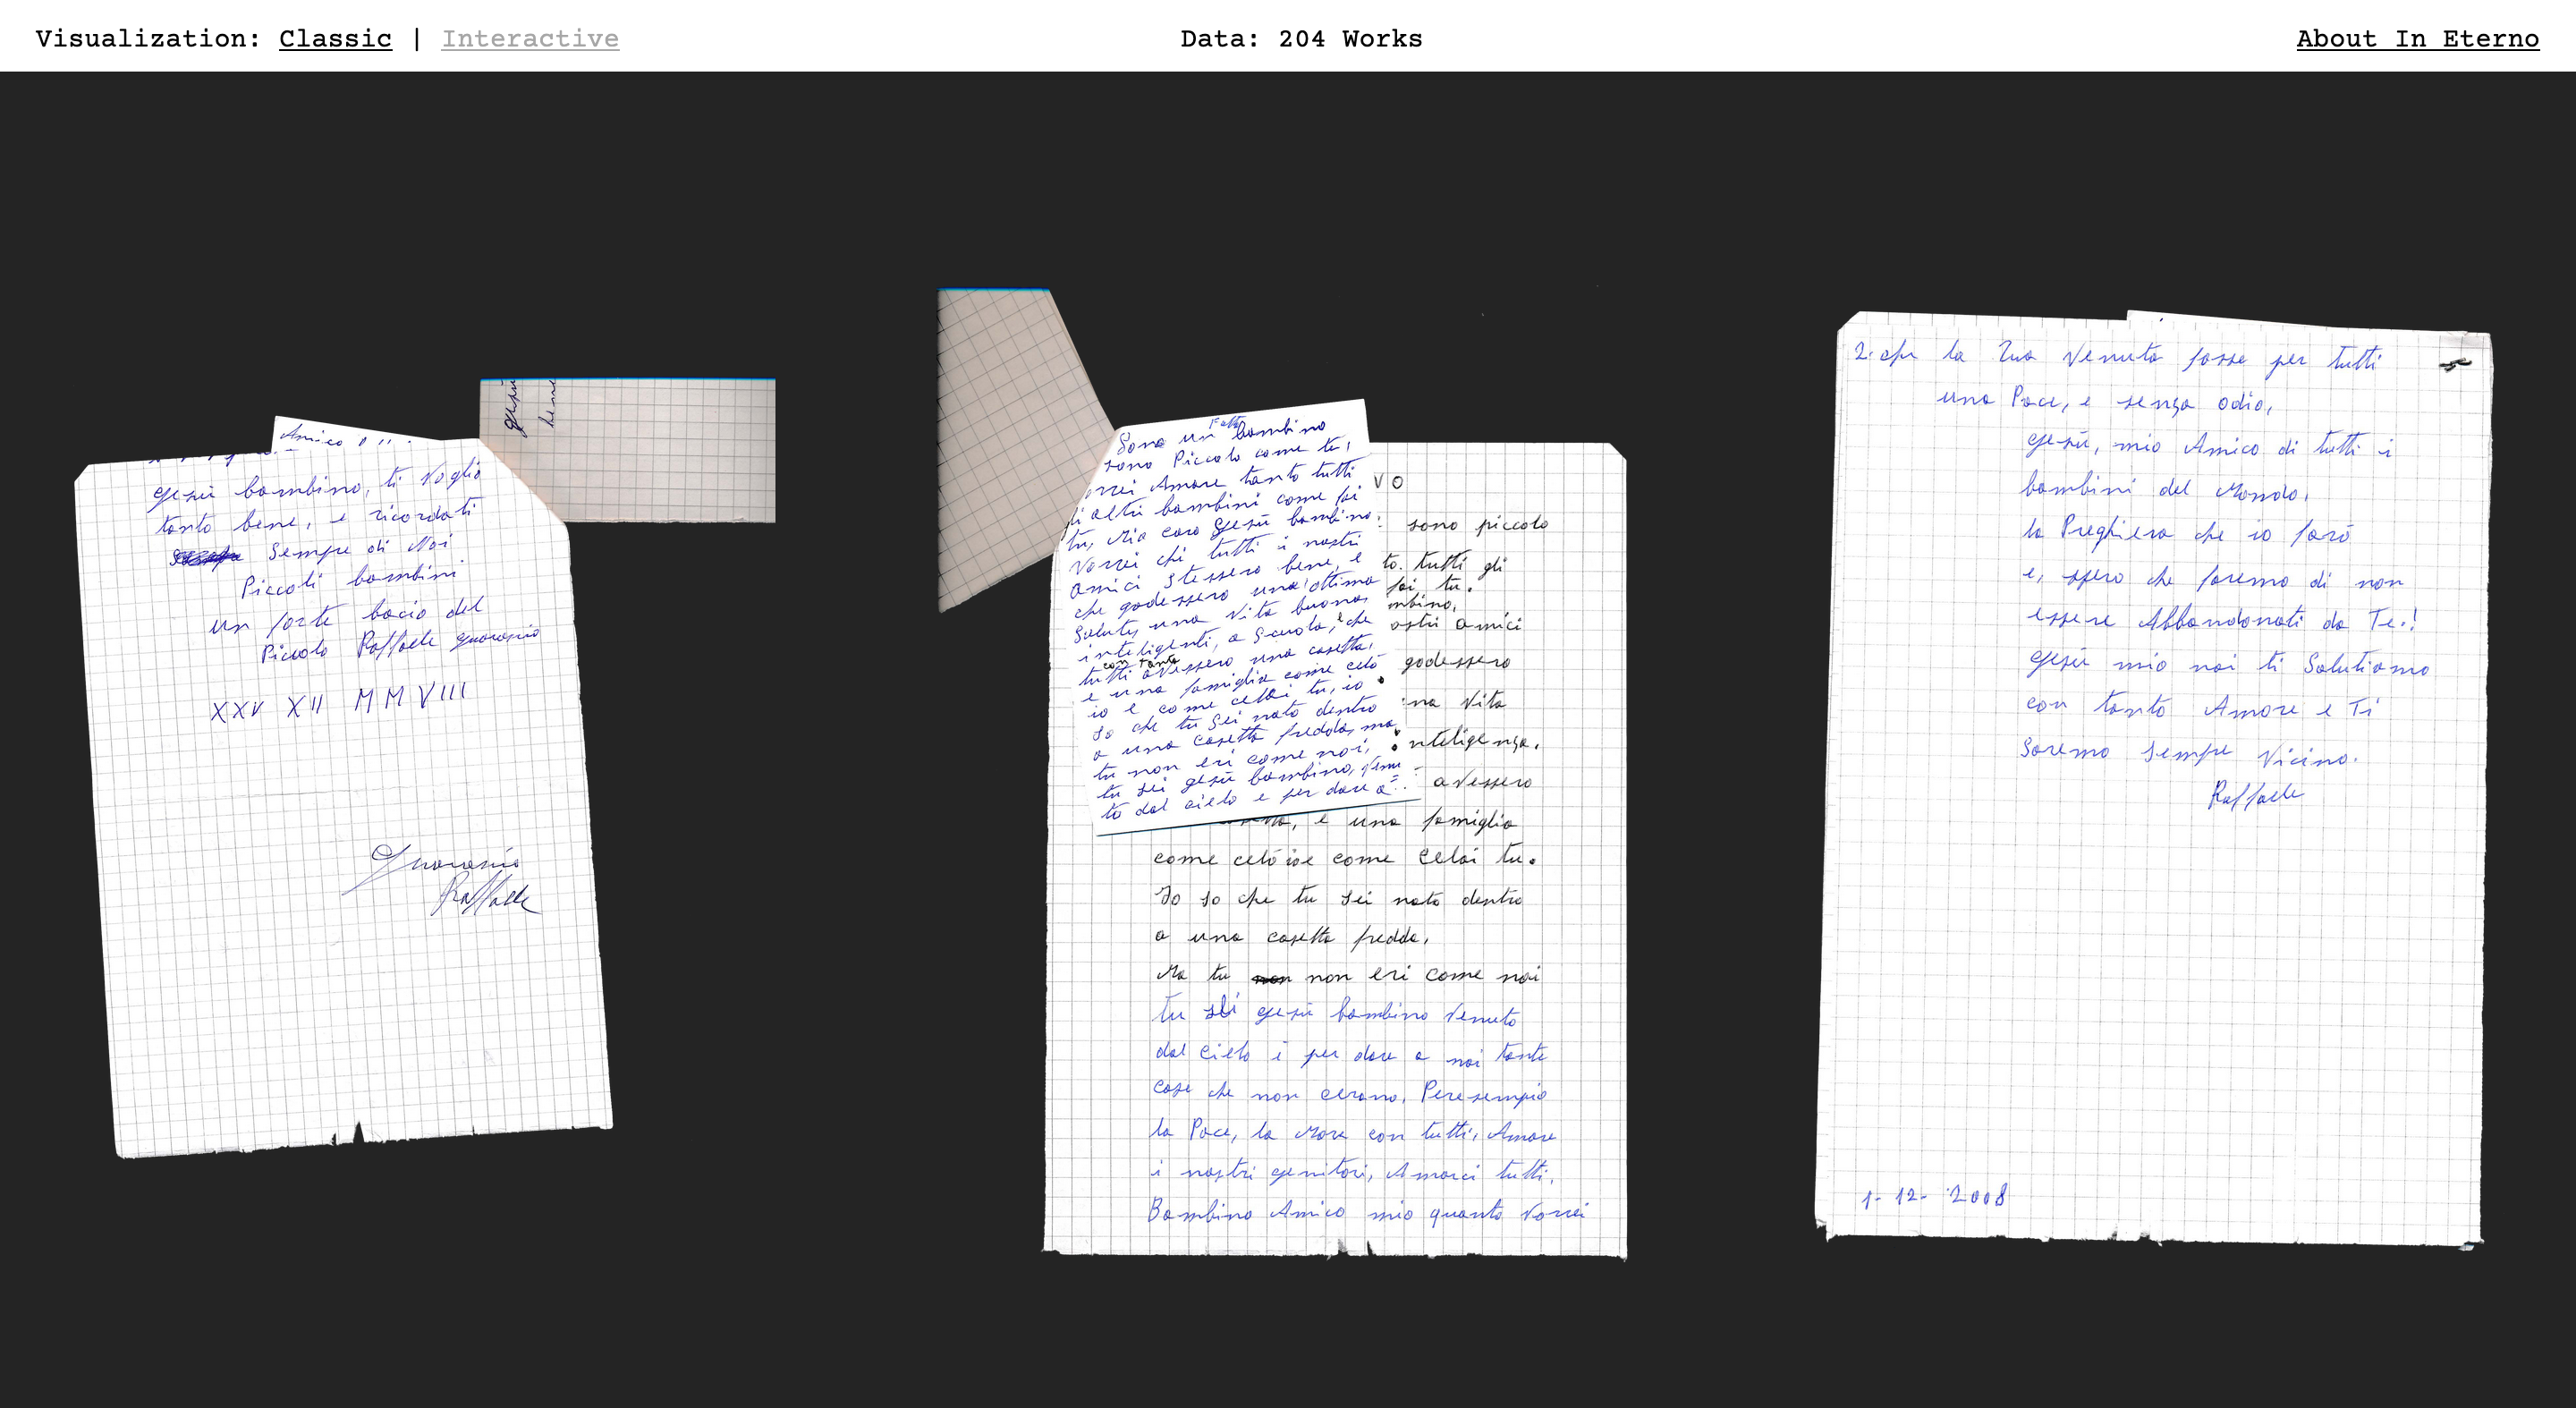 Visualization: Classic | Interactive
Data: 204 Works
About In Eterno
Amico
gesù bambino, ti voglio
tanto bene, e ricordati
Sempre di Noi
Piccoli bambini
un forte bacio del
Piccolo Raffaele
XXV XII MMVIII
Raffaele
gesù
bene
Sono un bambino
sono Piccolo come te,
vorrei Amare tanto tutti
altri bambini come fai
tu, Mio caro gesù bambino.
Vorrei che tutti i nostri
amici stessero bene, e
che godessero una ottima
salute, una vita buona,
inteligenti, a scuola, e che
con tanta
tutti avessero una casetta,
e una famiglia come celò
io e come celai tu, io
so che tu sei nato dentro
a una casetta fredda, ma
tu non eri come noi,
tu sei gesù bambino, venu
to dal cielo e per dare a
VO
sono piccolo
to. tutti gli
fai tu.
mbino,
ostri amici
godessero
na vita
nteligenza.
avessero
, e una famiglia
come celò io e come celai tu.
Io so che tu sei nato dentro
a una casetta fredda,
Ma tu non eri come noi
tu sei gesù bambino venuto
dal cielo e per dare a noi tante
cose che non cerano, Peresempio
la Pace, la More con tutti, Amare
i nostri genitori, Amarci tutti,
Bambino Amico mio quanto vorrei
2. che la Tua Venuta fosse per tutti
una Pace, e senza odio,
gesù, mio Amico di tutti i
bambini del Mondo,
la Preghiera che io farò
e, spero che faremo di non
essere Abbandonati da Te.!
gesù mio noi ti Salutiamo
con tanto Amore e Ti
Saremo Sempre Vicino.
Raffaele
1-12-2008